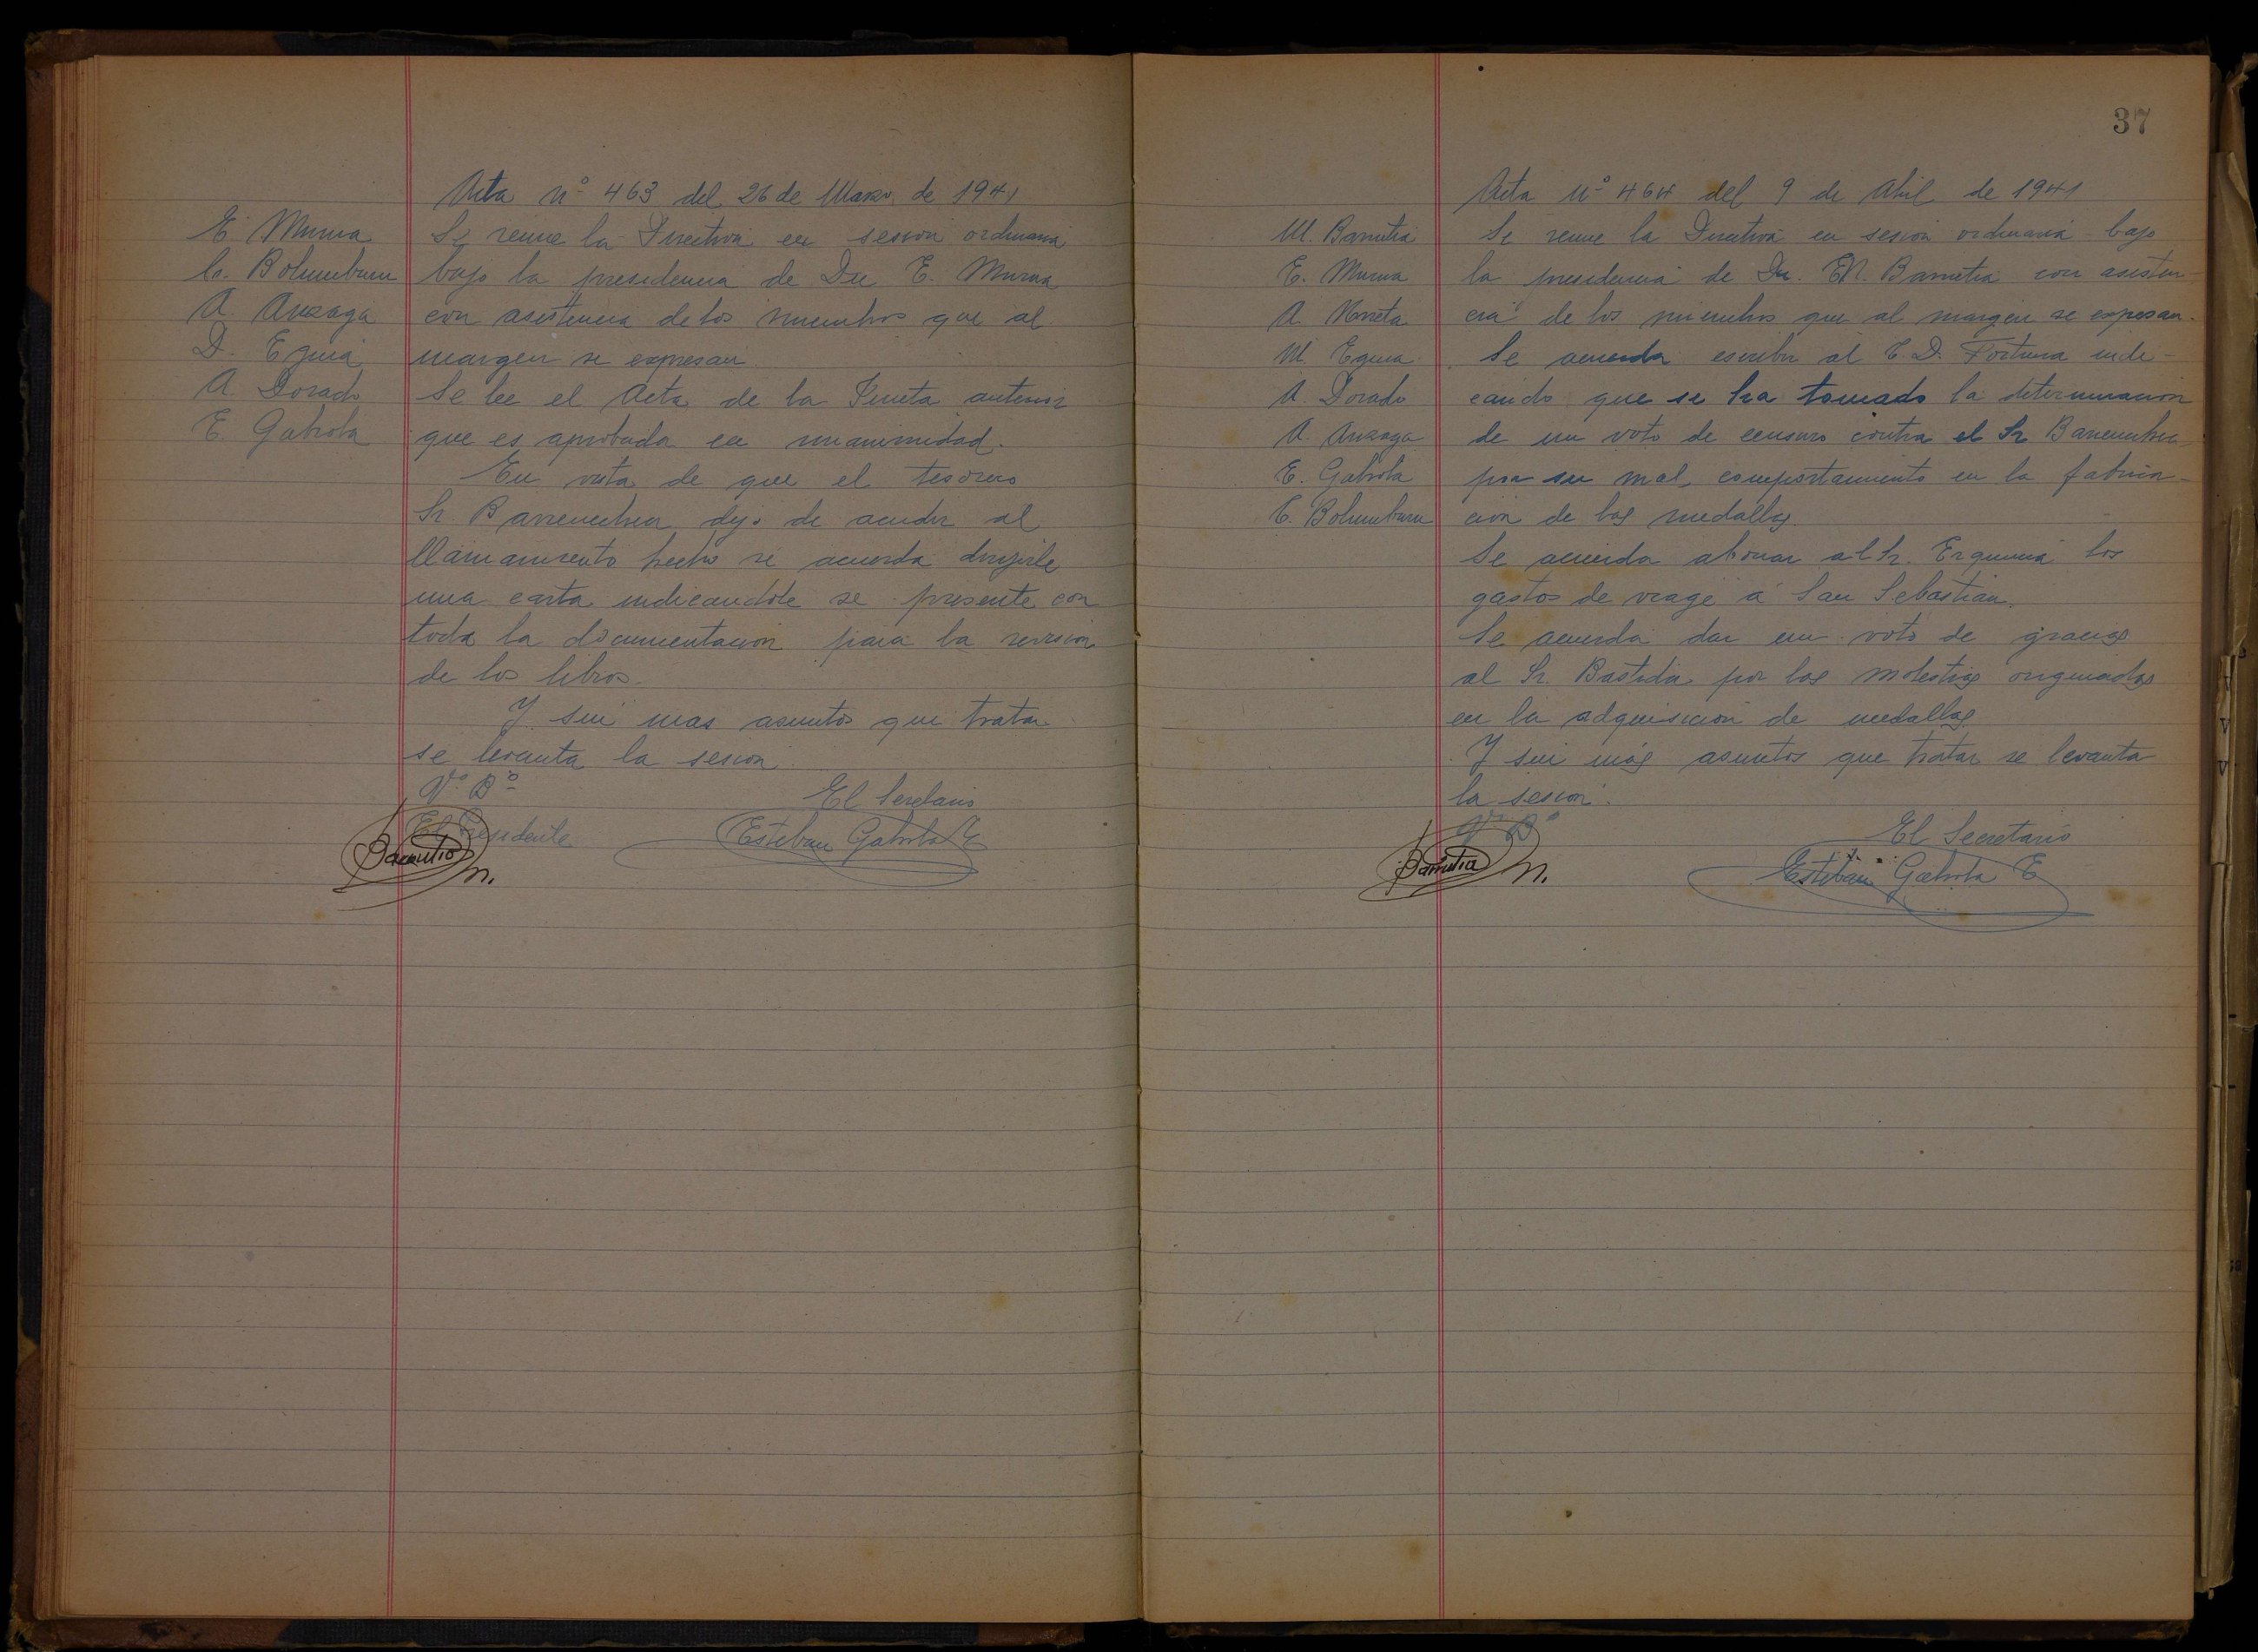 Acta nº 463 del 26 de Marzo de 1941
E. Murua
C. Bolumburu
A. Anzaga
D. Eguia
A. Dorado
E. Gabiola
Se reune la Directiva en sesion ordinaria
bajo la presidencia de Dn E. Murua
con asistencia de los miembros que al
margen se expresan.
Se lee el Acta de la Junta anterior
que es aprobada en unanimidad.
En vista de que el tesorero
Sr. Barrenechea dejo de acudir al
llamamiento hecho se acuerda dirigirle
una carta indicandole se presente con
toda la documentacion para la revision
de los libros.
Y sin mas asuntos que tratar
se levanta la sesion.
Vº Bº
El Secretario
El Presidente
Esteban Gabiola E
Barrutia
37
Acta nº 464 del 9 de Abril de 1941
M. Barrutia
E. Murua
A.
M. Eguia
A. Dorado
A. Anzaga
E. Gabiola
C. Bolumburu
Se reune la Directiva en sesion ordinaria bajo
la presidencia de Dn. M. Barrutia con asisten-
cia de los miembros que al margen se expresan.
Se acuerda escribir al C.D. Fortuna indi-
cando que se ha tomado la determinacion
de un voto de censura contra el Sr Barrenechea
por su mal comportamiento en la fabrica-
cion de las medallas.
Se acuerda abonar al Sr. Ergunia los
gastos de viage á San Sebastian.
Se acuerda dar un voto de gracias
al Sr. Bastida por las molestias originadas
en la adquisicion de medallas
Y sin más asuntos que tratar se levanta
la sesion.
Vº Bº
El Secretario
Barrutia
Esteban Gabiola E